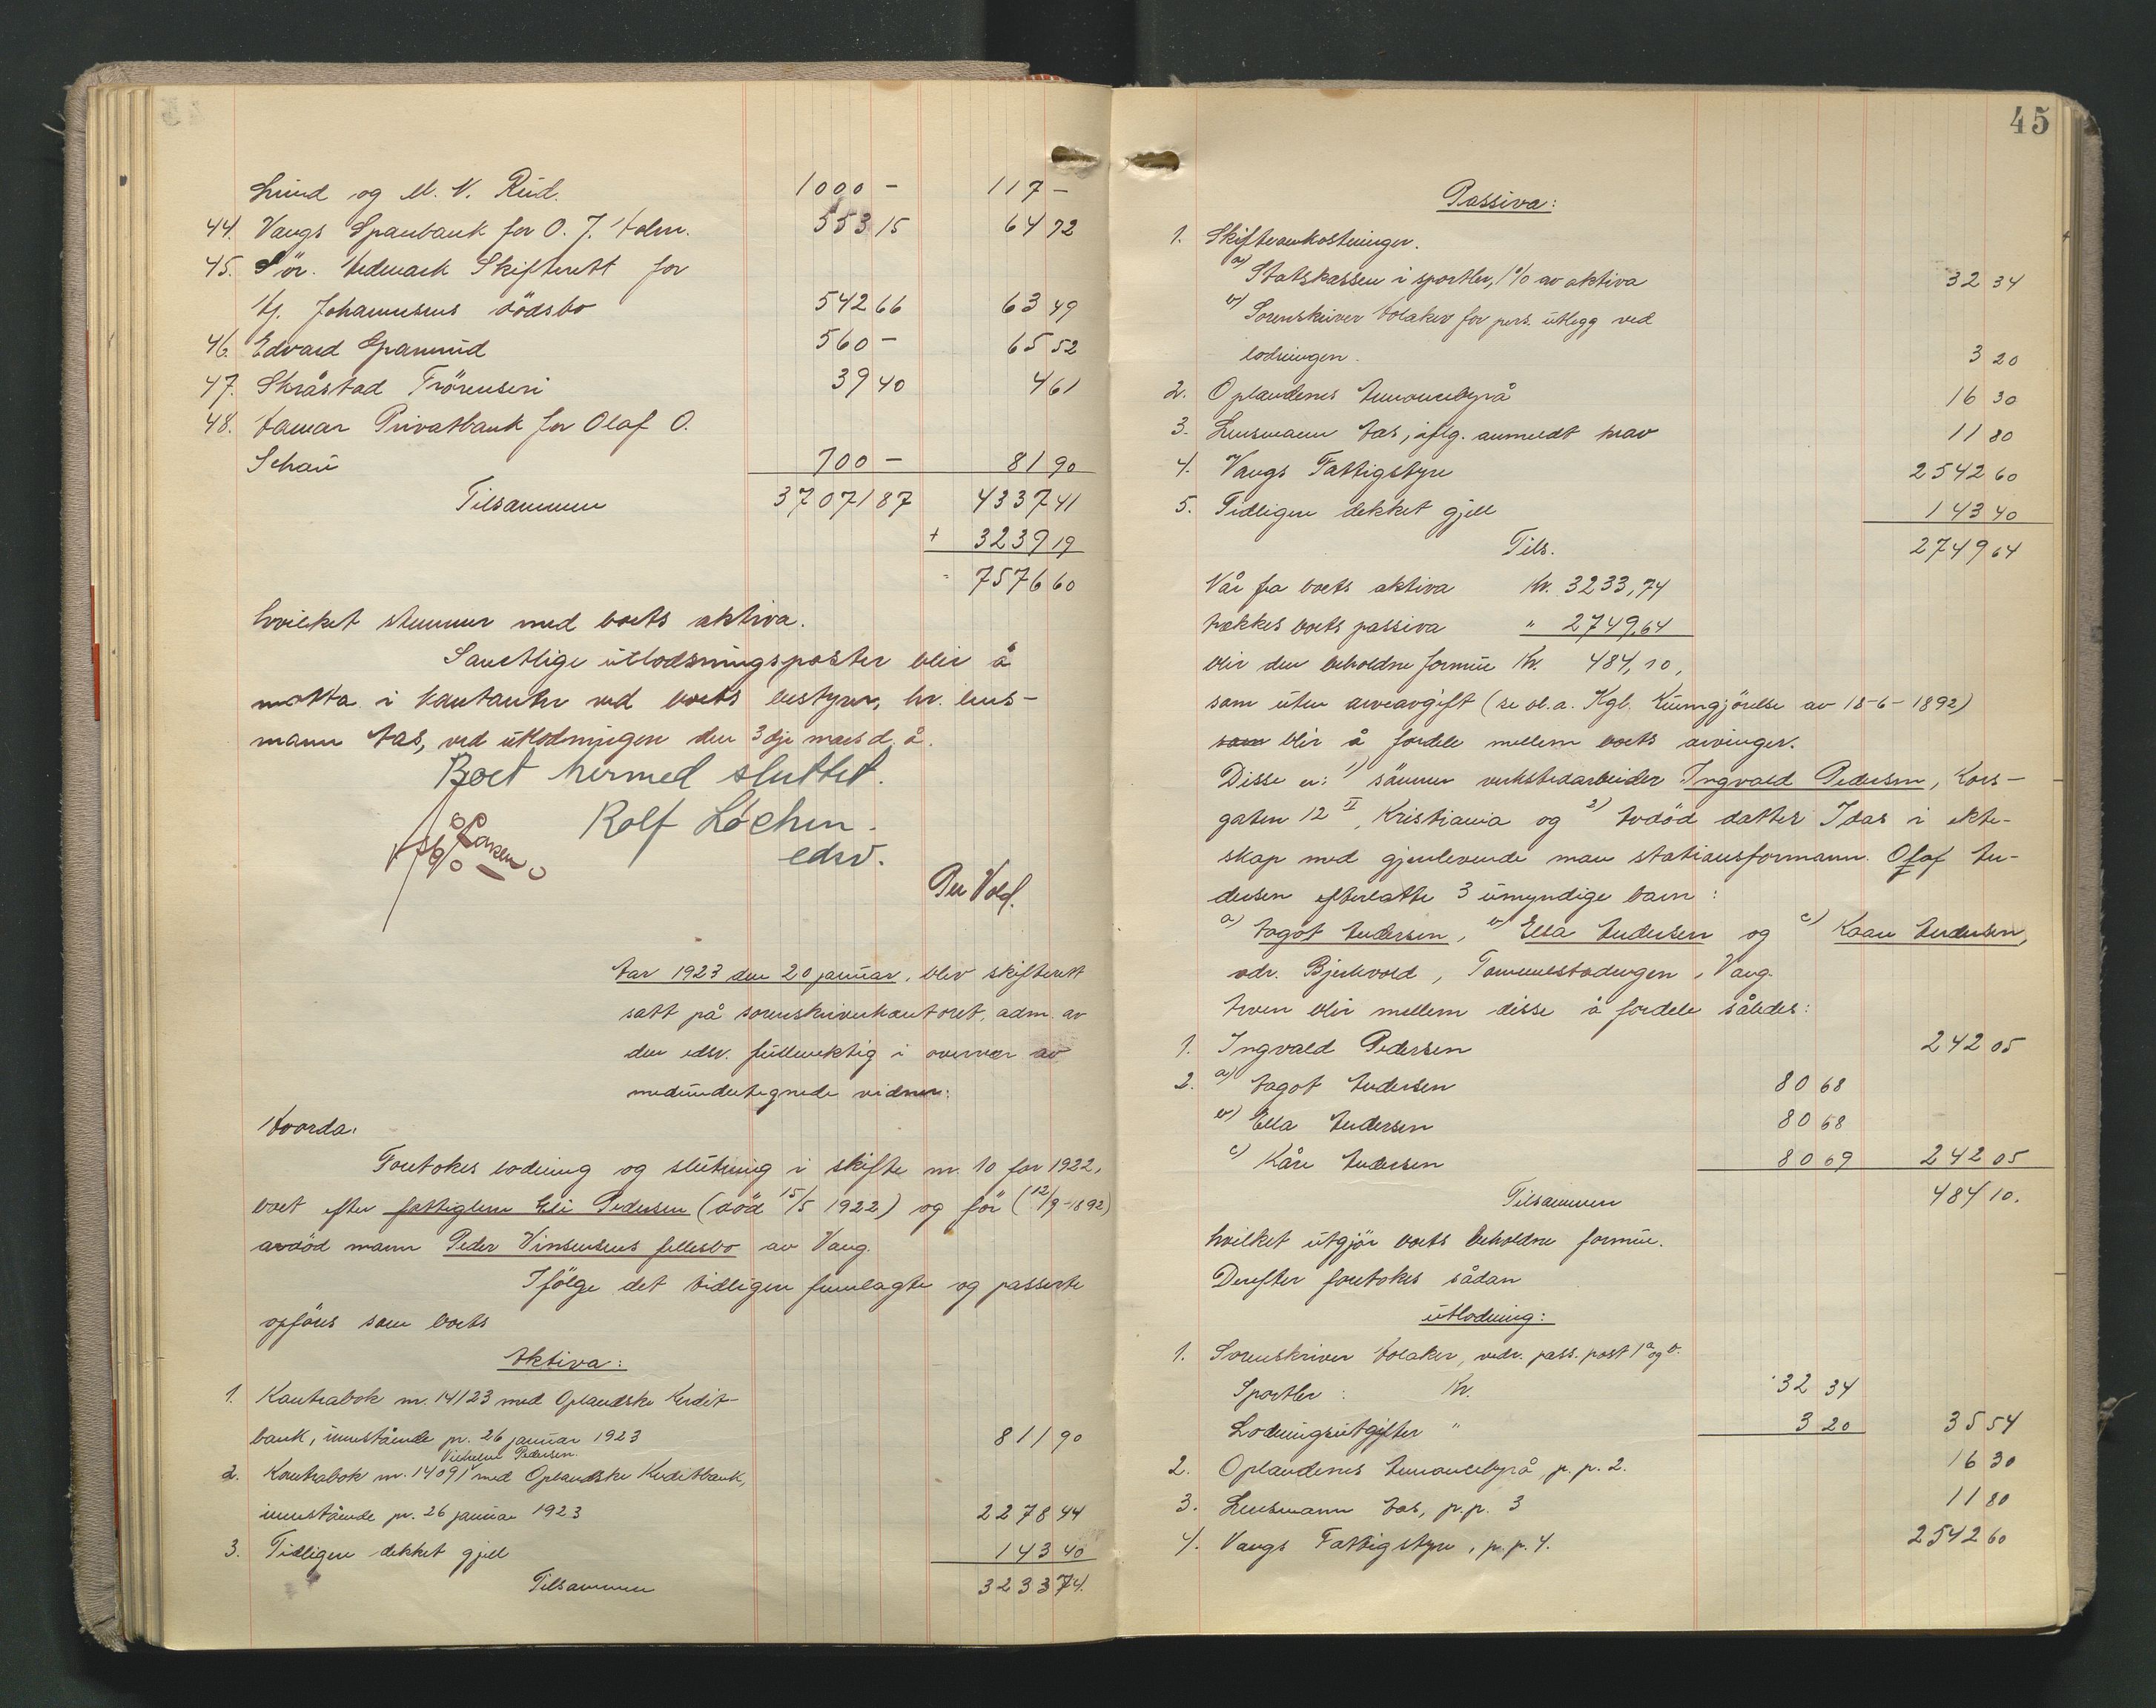 Lund og M. N. Rud. 1000 - 117 -
44. Vangs Sparebank for O. J. Holm. 553 15 64 72
45. Sör. Hedmark Skifterett for
Hj. Johannesens dödsbo 542 66 63 49
46. Edvard Granrud 560 - 65 52
47. Skråstad Trörenseri 39 40 4 61
48. Hamar Privatbank for Olaf O.
Schau 700 - 81 90
Tilsammen 37071 87 4337 41
+ 3239 19
7576 60
hvilket stemmer med boets aktiva.
Samtlige utlodningsposter blir å
motta i kontanter ved boets bestyrer, hr. lens-
mann Aas, ved utlodningen den 3dje mars d. å.
Boet hermed sluttet.
Rolf Löchen.
edsv.
Per Vold.
Aar 1923 den 20 januar, blev skifterett
satt på sorenskriverkontoret, adm. av
den edsv. fullmektig i overvær av
medundertegnede vidner:
Hvorda:
Foretokes lodning og slutning i skifte nr. 10 for 1922,
boet efter fattiglem Eli Pedersen (död 15/5 1922) og för (12/9-1892)
avdöd mann Peder Vinsensens fellesbo av Vang.
Ifölge det tidligere fremlagte og passerte
opföres som boets
Aktiva:
1. Kontrabok nr. 14123 med Oplandske Kredit-
bank, innestående pr. 26 januar 1923 811 90
Vilhelm Pedersen
2. Kontrabok nr. 14091 med Oplandske Kreditbank,
innestående pr. 26 januar 1923 2278 44
3. Tidligere dekket gjell 143 40
Tilsammen 3233 74.
45
Passiva:
1. Skifteomkostninger.
a) Statskassen i sportler, 1% av aktiva 32 34
b) Sorenskriver Aolaker for pers. utlegg ved
lodningen. 3 20
2. Oplandenes Annoncebyrå 16 30
3. Lensmann Aas, iflg. anmeldt krav 11 80
4. Vangs Fattigstyre 2542 60
5. Tidligere dekket gjell 143 40
Tils. 2749 64
Når fra boets aktiva Kr. 3233,74
trekkes boets passiva " 2749,64
blir den beholdne formue Kr. 484,10,
som uten arveavgift (se bl. a. Kgl. Kunngjörelse av 18-6-1892)
som blir å fordele mellem boets arvinger.
Disse er: 1) sönnen verkstedarbeider Ingvald Pedersen, Kors-
gaten 12 II, Kristiania og 2) avdöd datter Idas i ekte-
skap med gjenlevende man stationsformann Olaf An-
dersen efterlatte 3 umyndige barn:
a) Aagot Andersen, b) Ella Andersen og c) Kaare Andersen,
adr. Bjerkvold, Tommelstadengen, Vang.
Arven blir mellem disse å fordele således:
1. Ingvald Pedersen 242 05
2. a) Aagot Andersen 80 68
b) Ella Andersen 80 68
c) Kåre Andersen 80 69 242 05
Tilsammen 484 10.
hvilket utgjör boets beholdne formue.
Derefter foretokes sådan
utlodning:
1. Sorenskriver Aolaker, vedr. pass. post 1 a og b.
Sportler: Kr. 32 34
Lodningsutgifter " 3 20 35 54
2. Oplandenes Annoncebyrå p. p. 2. 16 30
3. Lensmann Aas, p. p. 3 11 80
4. Vangs Fattigstyre, p. p. 4. 2542 60